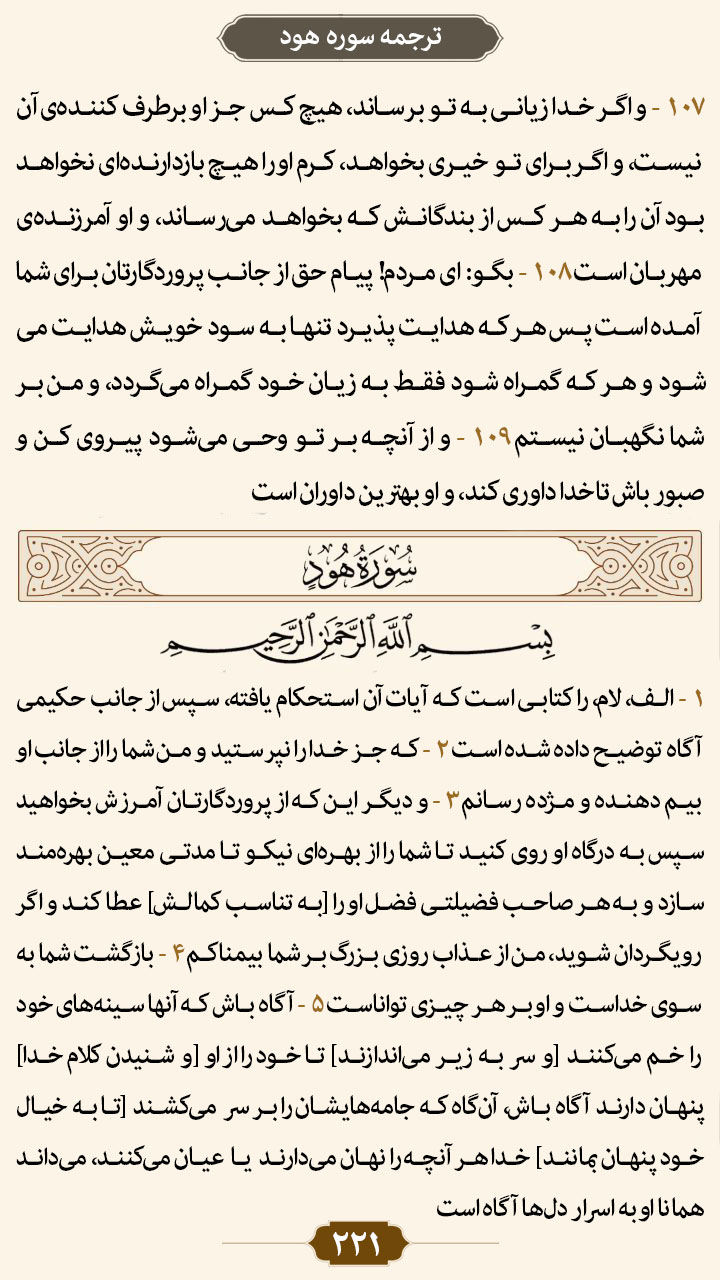 ترجمه سوره هود
۱۰۷ - و اگر خدا زیانی به تو برساند، هیچ کس جز او برطرف کننده‌ی آن
نیست، و اگر برای تو خیری بخواهد، کرم او را هیچ بازدارنده‌ای نخواهد
بود آن را به هر کس از بندگانش که بخواهد می‌رساند، و او آمرزنده‌ی
مهربان است ۱۰۸ - بگو: ای مردم! پیام حق از جانب پروردگارتان برای شما
آمده است پس هر که هدایت پذیرد تنها به سود خویش هدایت می
شود و هر که گمراه شود فقط به زیان خود گمراه می‌گردد، و من بر
شما نگهبان نیستم ۱۰۹ - و از آنچه بر تو وحی می‌شود پیروی کن و
صبور باش تا خدا داوری کند، و او بهترین داوران است
سُورَةُ هُودٍ
بِسْمِ اللَّهِ الرَّحْمَٰنِ الرَّحِيمِ
۱ - الف، لام، را کتابی است که آیات آن استحکام یافته، سپس از جانب حکیمی
آگاه توضیح داده شده است ۲ - که جز خدا را نپرستید و من شما را از جانب او
بیم دهنده و مژده رسانم ۳ - و دیگر این که از پروردگارتان آمرزش بخواهید
سپس به درگاه او روی کنید تا شما را از بهره‌ای نیکو تا مدتی معین بهره‌مند
سازد و به هر صاحب فضیلتی فضل او را [به تناسب کمالش] عطا کند و اگر
رویگردان شوید، من از عذاب روزی بزرگ بر شما بیمناکم ۴ - بازگشت شما به
سوی خداست و او بر هر چیزی تواناست ۵ - آگاه باش که آنها سینه‌های خود
را خم می‌کنند [و سر به زیر می‌اندازند] تا خود را از او [و شنیدن کلام خدا]
پنهان دارند آگاه باش، آن‌گاه که جامه‌هایشان را بر سر می‌کشند [تا به خیال
خود پنهان بمانند] خدا هر آنچه را نهان می‌دارند یا عیان می‌کنند، می‌داند
همانا او به اسرار دل‌ها آگاه است
۲۲۱